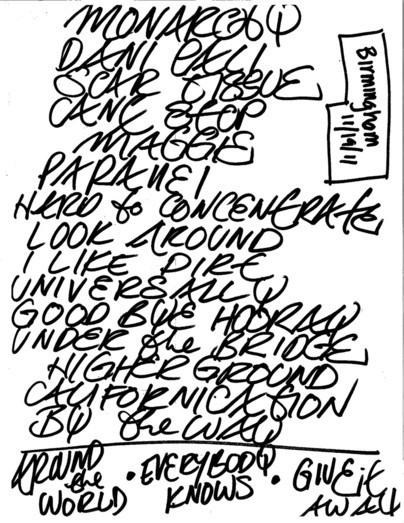 MONARCHY
DANI CALI
SCAR TISSUE
CANT STOP
MAGGIE
PARALLEL
HARD to CONCENTRATE
LOOK AROUND
I LIKE DIRT
UNIVERSALLY
GOOD BYE HOORAY
UNDER the BRIDGE
HIGHER GROUND
CALIFORNICATION
BY the WAY
Birmingham
11/19/11
AROUND the WORLD • EVERYBODY KNOWS • GIVE it AWAY